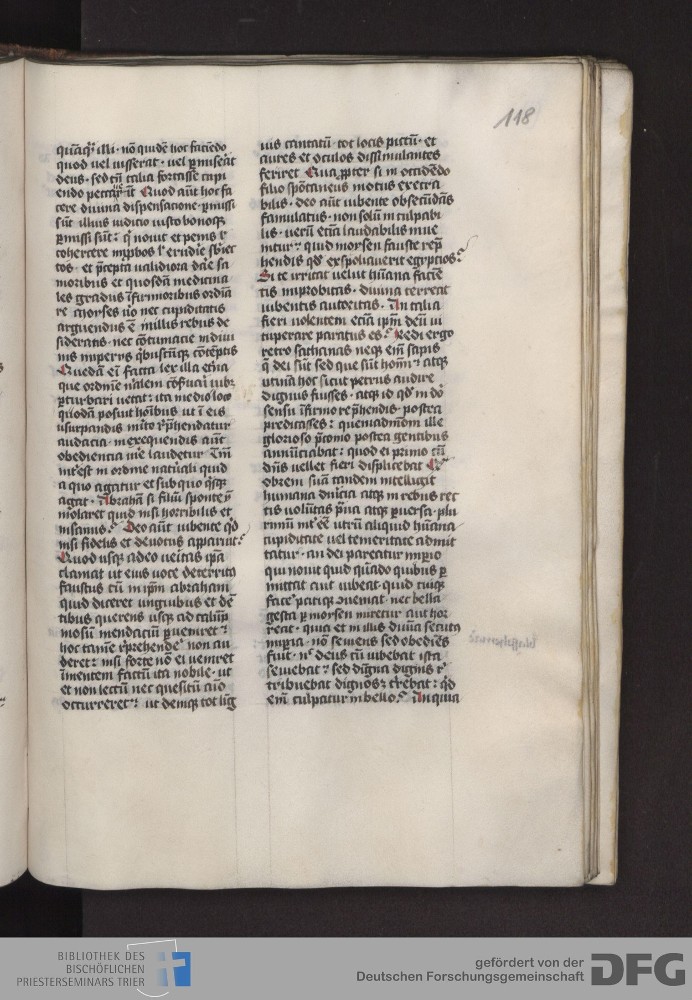 118
quāqȝ illi · nō quidē hoc faciēdo
quod uel iusserat · uel ꝑmiserat
deus · sed tn̄ talia fortasse cupi
endo
Quod aūt hoc fa
cere diuina dispensacione · ꝑmissi
sūt illius iudicio iusto bonoqȝ
ꝑmissi sūt · qͥ nouit et penis ł
cohercere īprobos ł erudire sbiec
tos · et ꝑcepta ualidiora dare sa
nioribus et quosdā medicina
les gradus īfirmioribus ordīa
re Moyses uo nec cupiditatis
arguendus ē in illis rebus de
sideratis · nec cōtumacie in diui
nis imperijs qͥbuscūqȝ cōtēptis
Quedā eī facta lex illa et̄na
que ordinē nālem cōseruari iubꝫ
ꝑturbari uetat · ita medio loco
quodā posuit hōibus ut ī eis
usurpandis mito rep̄hendatur
audacia · in exequendis aūt
obedientia iure laudetur Tm̄
int̄est in ordine naturali quid
a quo agatur et sub quo qͥsqȝ
agat · Abraham si filiū sponte ī
molaret quid nisi horribilis et
insanus · Deo aūt iubente qͥd
nisi fidelis et deuotus apparuit
Quod usqȝ adeo ueritas ipā
clamat ut eius uoce deterrito
faustus cū in ipm̄ abraham
quid diceret unguibus et dē
tibus querens usqȝ ad calūp
niosū mendaciū ꝑueniret
hoc tamē rep̄hendē non au
deret · nisi forte nō ei ueniret
ī mentem factū ita nobile · ut
et non lectū nec quesitū aīo
occurreret · ut deniqȝ tot līg
uis cantatū · tot locis pictū · et
aures et oculos dissimulantes
feriret Qua ꝓpter si in occidēdo
filio spōtaneus motus execra
bilis · deo aūt iubente obsecūdās
famulatus · non solū inculpabi
lis · uerū etiā laudabilis inue
nitur · quid moysen fauste rep̄
hendis qd̄ expoliauerit egyptios
Si te irritat uelut hūana facie
tis improbitas · diuina terreat
iubentis autoritas · An talia
fieri uolentem etiā ipm̄ deū ui
tuperare paratus es · Redi ergo
retro sathanas neqȝ enī sapis
q̄ dei sūt sed que sūt hoīm · atqȝ
utinā hoc sicut petrus audire
dignus fuisses · atqȝ id qd̄ in dō
sensu īfirmo rep̄hendis · postea
predicasses · quemadmodm̄ ille
glorioso pͣconio postea gentibus
annūciabat · quod ei primo cū
dn̄s uellet fieri displicebat
obrem suā tandem intelligit
humana duricia atqȝ in rebus rec
tis uolūtas pͣua atqȝ ꝑuersa · plu
rimū int̄ēē utrū aliquid hūana
cupiditate uel temeritate admit
tatur · an dei pareatur impio
qui nouit quid quādo quibus ꝑ
mittat aut iubeat · quid cuiqȝ
face patiqȝ ꝯueniat · nec bella
gesta ꝑ moysen miretur aut hor
reat · quia et in illis diuīa secutᵃ
imꝑia · nō seuiens sed obediēs
fuit · nͨ deus cū iubebat ista
seuiebat · sed digna dignis rͤ
tribuebat dignosqȝ t̄rebat · qͥd
enī culpatur in bello · An quia
BIBLIOTHEK DES
BISCHÖFLICHEN
PRIESTERSEMINARS TRIER
gefördert von der
Deutschen Forschungsgemeinschaft
DFG